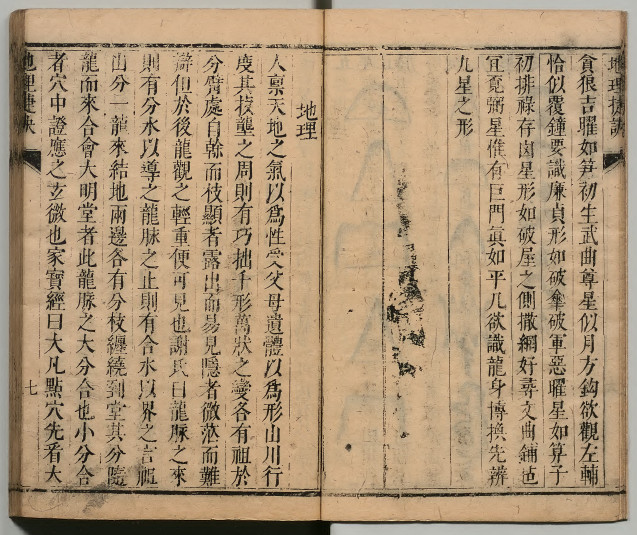 地理捷訣
貪狼吉曜如笋初生武曲尊星似月方鈎欲觀左輔
恰似覆鐘要識廉貞形如破傘破軍惡曜星如算子
初排祿存囟星形如破屋之側撒網好尋文曲鋪毡
冝覔弼星惟有巨門眞如平几欲識龍身博換先辨
九星之形
地理
人禀天地之氣以爲性受父母遺體以爲形山川行
度其拔壟之周則有巧拙千形萬狀之變各有祖於
分臂處自幹而枝顯者露出而易見隱者微茫而難
辯但於後龍觀之輕重便可見也謝氏曰龍脉之來
則有分水以導之龍脉之止則有合水以界之言祖
山分一龍來結地兩邊各有分枝纏繞到堂其分隨
龍而來合會大明堂者此龍脉之大分合也小分合
者穴中證應之玄微也家寳經曰大凡點穴先看大
地理捷訣
七